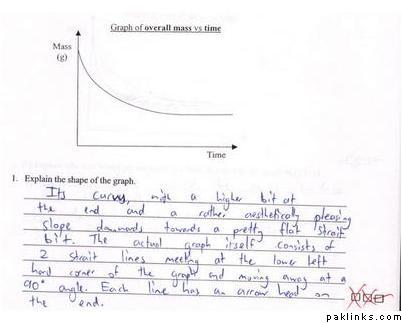 Graph of overall mass vs time
Mass
(g)
Time
1. Explain the shape of the graph.
Its curvy, with a higher bit at
the end and a rather aesthetically pleasing
slope downwards towards a pretty flat strait
bit. The actual graph itself consists of
2 strait lines meeting at the lower left
hand corner of the graph and moving away at a
90° angle. Each line has an arrow head on
the end.
paklinks.com